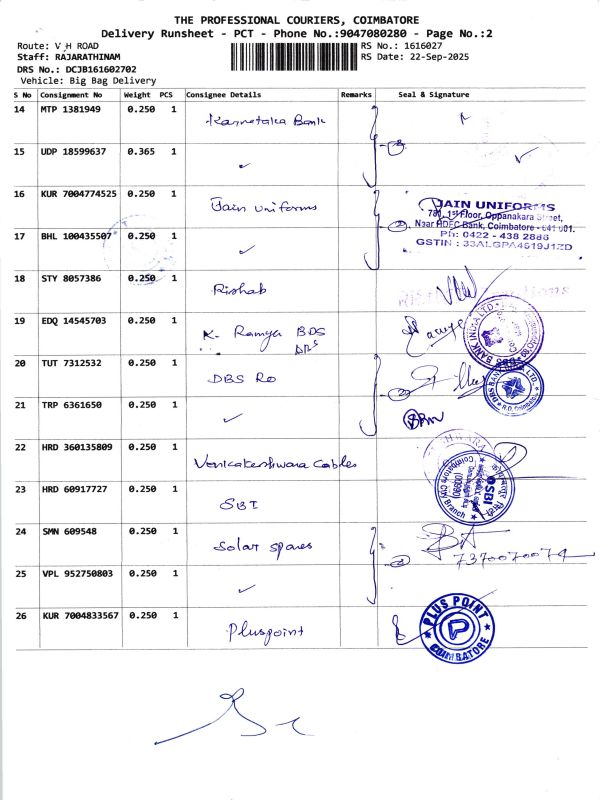 THE PROFESSIONAL COURIERS, COIMBATORE
Delivery Runsheet - PCT - Phone No.:9047080280 - Page No.:2
Route: V H ROAD
RS No.: 1616027
Staff: RAJARATHINAM
RS Date: 22-Sep-2025
DRS No.: DCJB161602702
Vehicle: Big Bag Delivery
S No Consignment No Weight PCS Consignee Details Remarks Seal & Signature
14 MTP 1381949 0.250 1 Karnataka Bank
15 UDP 18599637 0.365 1 ✓
16 KUR 7004774525 0.250 1 Jain uniforms
JAIN UNIFORMS
1st Floor, Oppanakara Street,
Near HDFC Bank, Coimbatore - 641 001.
17 BHL 100435507 0.250 1 ✓
Ph: 0422 - 438 2886
GSTIN : 33ALGPA4619J1ZD
18 STY 8057386 0.250 1 Rishab
19 EDQ 14545703 0.250 1 K. Ramya BDS
DRS
20 TUT 7312532 0.250 1 DBS RO
21 TRP 6361650 0.250 1 ✓
22 HRD 360135809 0.250 1 Venkateshwara Cables
23 HRD 60917727 0.250 1 SBI
SBI
Coimbatore City Branch
24 SMN 609548 0.250 1 Solar spares
7370070074
25 VPL 952750803 0.250 1 ✓
26 KUR 7004833567 0.250 1 Pluspoint
PLUS POINT
P
COIMBATORE